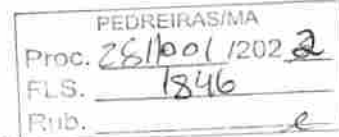 PEDREIRAS/MA
Proc. 2611001/2022
FLS. 1846
Rub.